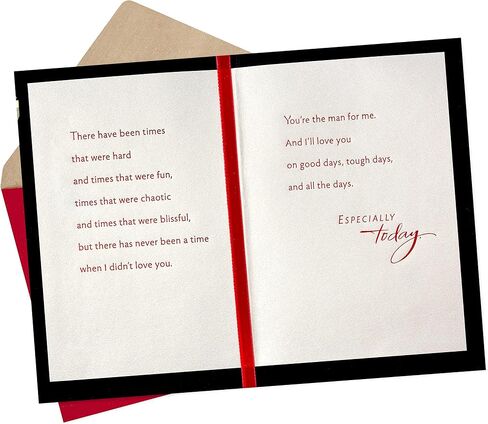 There have been times
that were hard
and times that were fun,
times that were chaotic
and times that were blissful,
but there has never been a time
when I didn't love you.
You're the man for me.
And I'll love you
on good days, tough days,
and all the days.
ESPECIALLY
today.